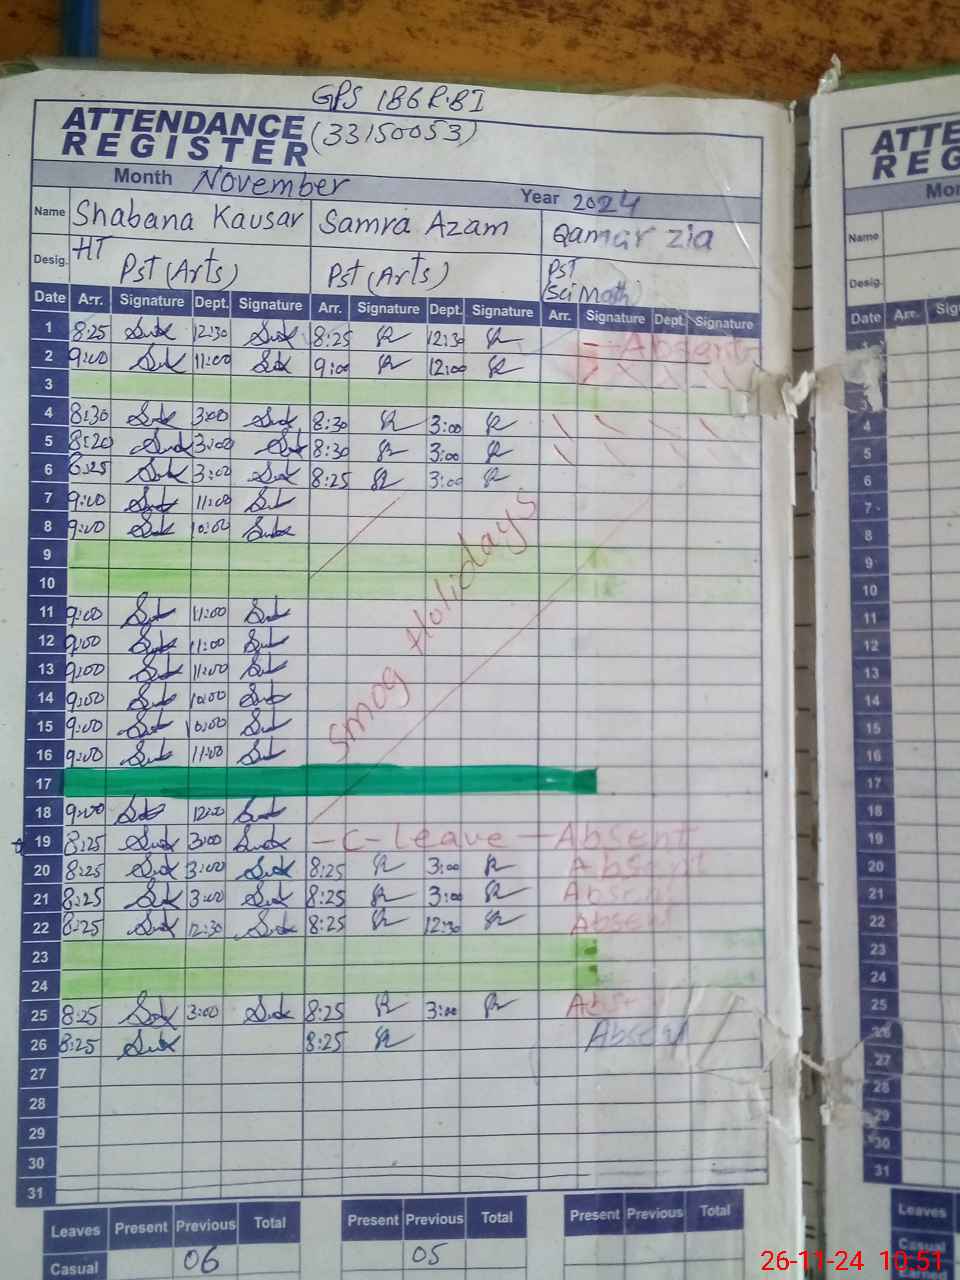 GPS 186 R.BI
ATTENDANCE (33150053)
REGISTER
Month November Year 2024
Name Shabana Kausar Samra Azam Qamar zia
Desig. HT Pst (Arts) Pst (Arts) PST (Sci Math)
Date Arr. Signature Dept. Signature Arr. Signature Dept. Signature Arr. Signature Dept. Signature
1 8:25 12:30 8:25 12:30 Absent
2 9:00 11:00 9:00 12:00
3
4 8:30 3:00 8:30 3:00
5 8:20 3:00 8:30 3:00
6 8:25 3:00 8:25 3:00
7 9:00 11:00
8 9:00 10:00
9
10
11 9:00 11:00
12 9:00 11:00
13 9:00 11:00
14 9:00 10:00
15 9:00 10:00
16 9:00 11:00
smog Holidays
17
18 9:00 12:00
19 8:25 3:00 -C-Leave - Absent
20 8:25 3:00 8:25 3:00 Absent
21 8:25 3:00 8:25 3:00 Absent
22 8:25 12:30 8:25 12:30 Absent
23
24
25 8:25 3:00 8:25 3:00
26 8:25 8:25 Absent
27
28
29
30
31
Leaves Present Previous Total Present Previous Total Present Previous Total
Casual 06 05
ATTE
REG
Mon
Name
Desig.
Date Arr. Sig
3
4
5
6
7
8
9
10
11
12
13
14
15
16
17
18
19
20
21
22
23
24
25
26
27
28
29
30
31
Leaves
Casual
26-11-24 10:51